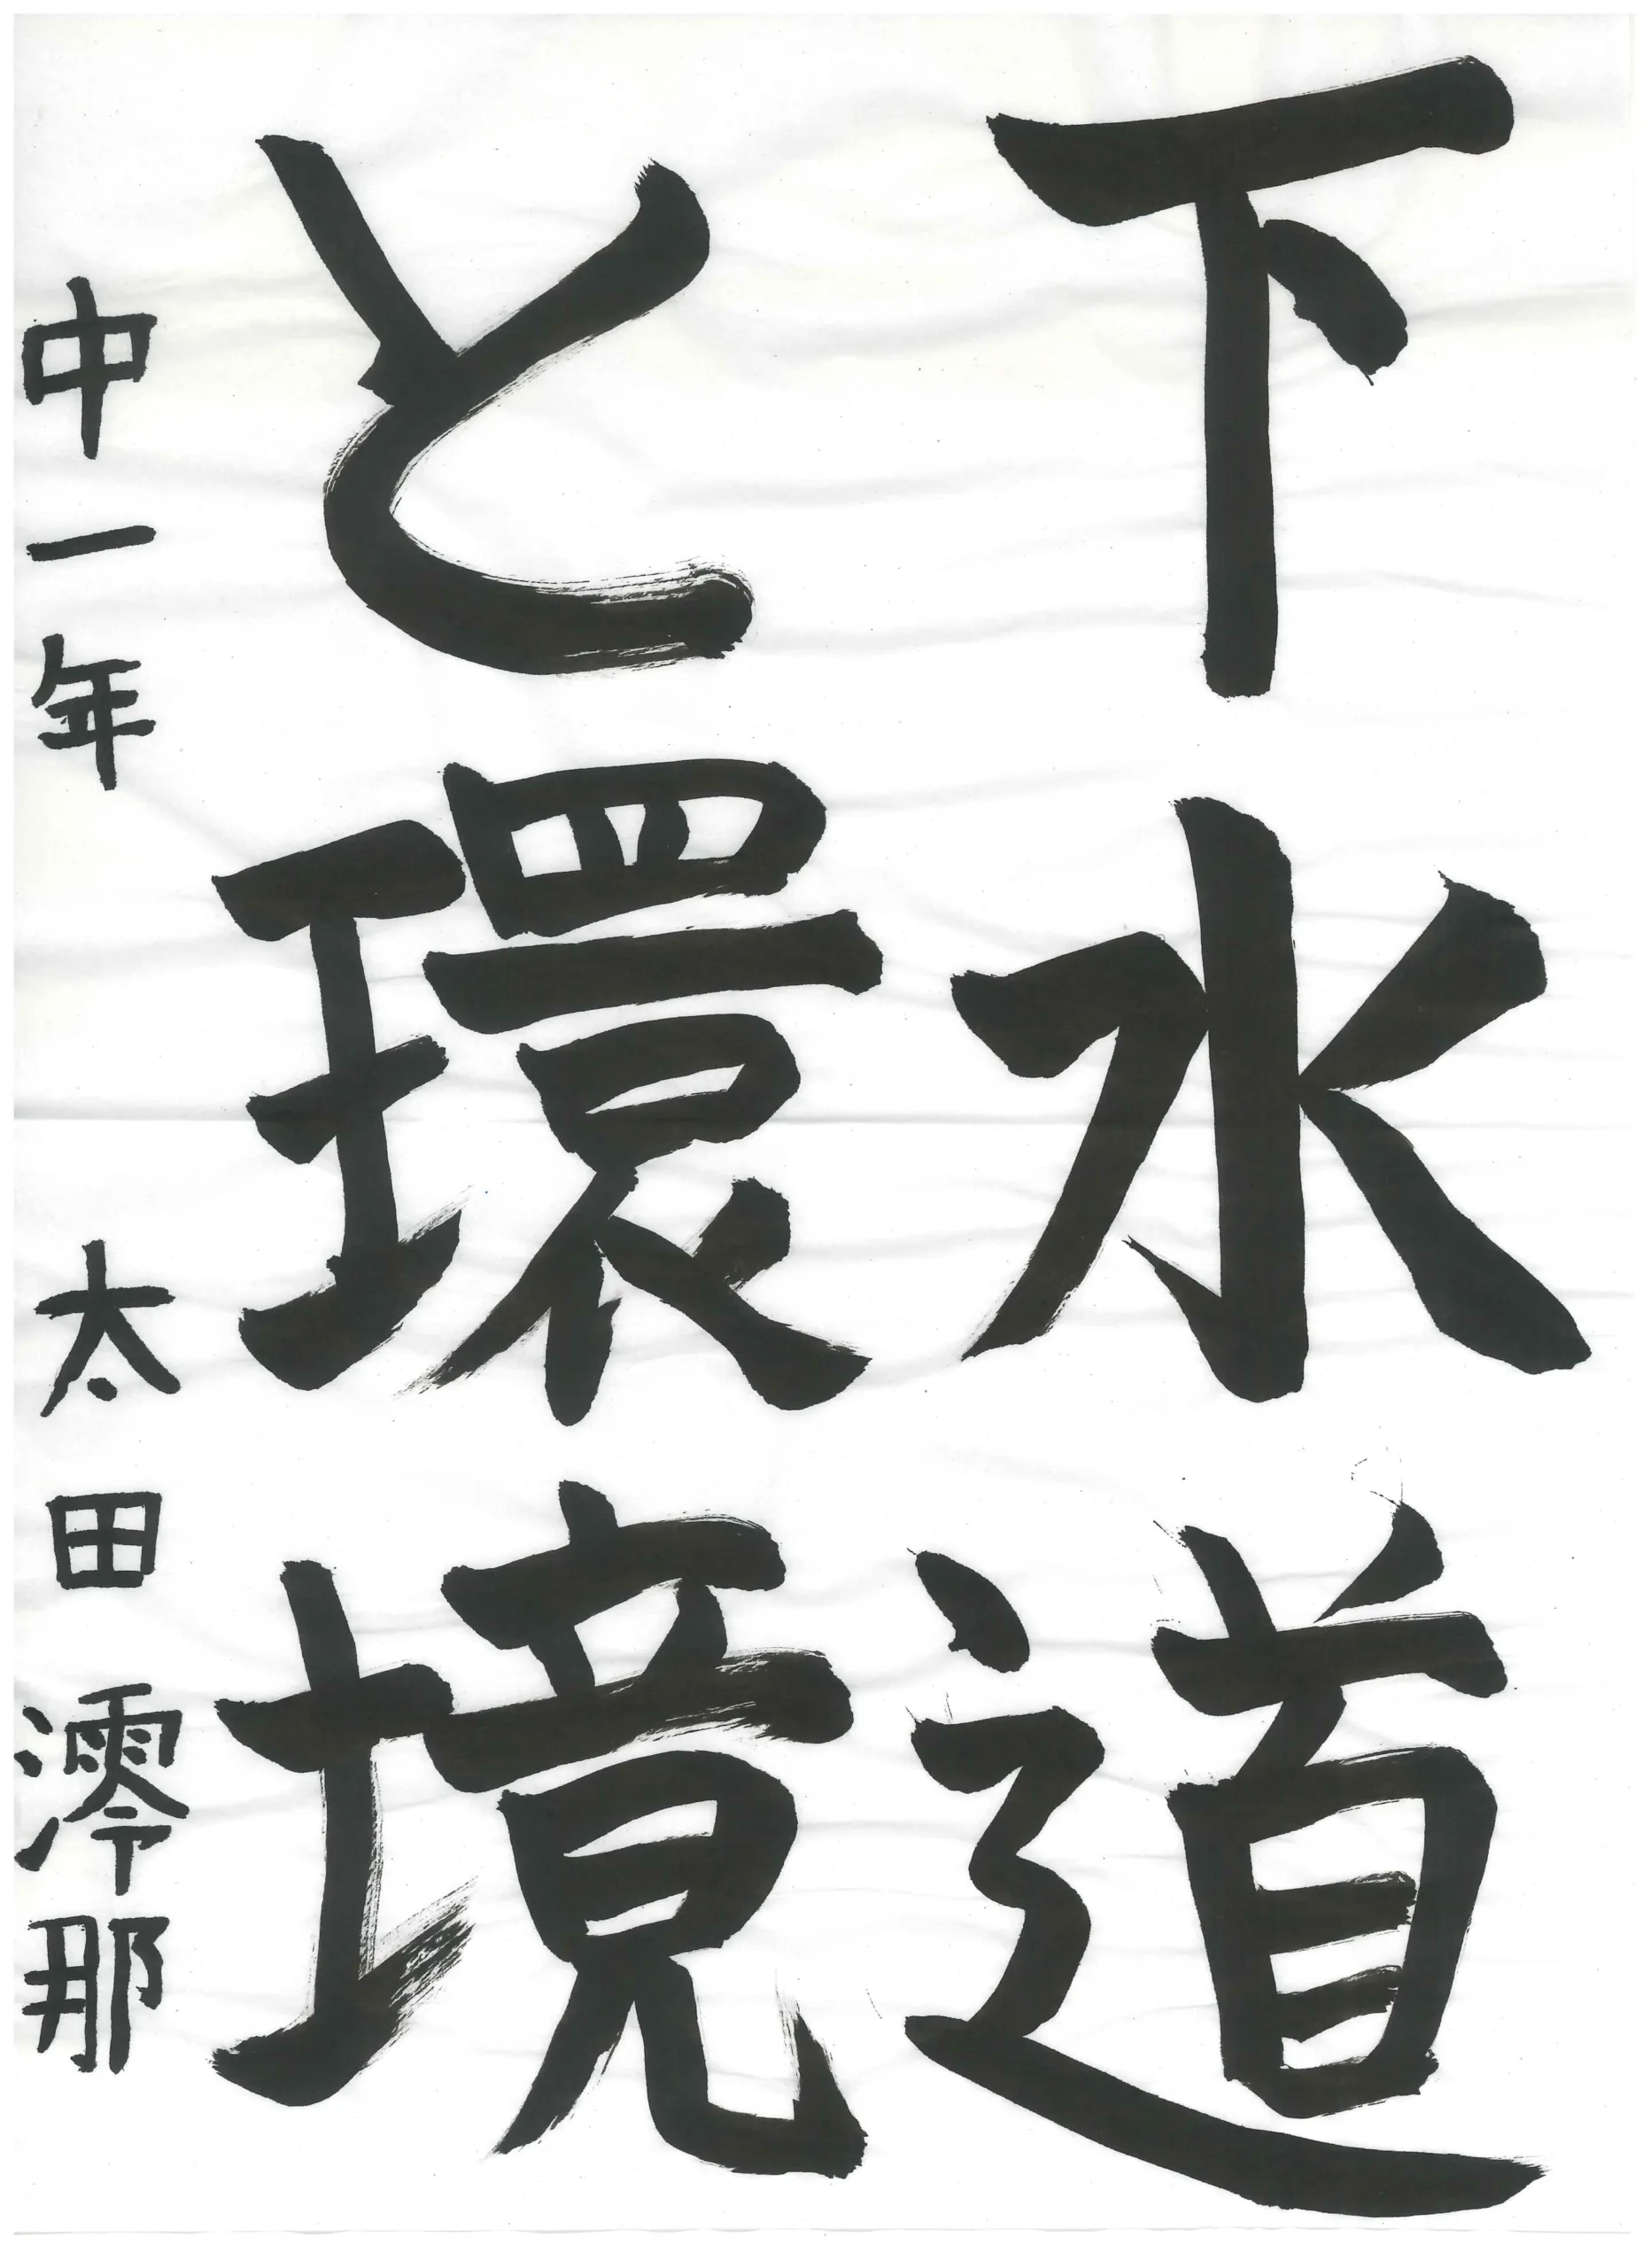 下水道
と環境
中一年 太田澪那